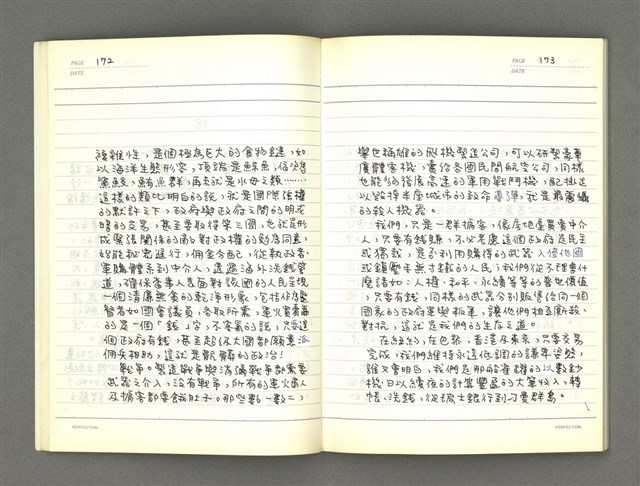 PAGE 172
DATE
複雜性，是個極為巨大的食物鏈，如
以海洋生態形容，頂端是鯨魚，依次
鯊魚，鮪魚群，再來就是水母之類……
這樣的類比明白的說，就是國際強權
的默許之下，政府與政府之間的明或
暗的交易，甚至要取得第三國，也就是形
成緊張關係的敵對政權的効忠同意，
始能秘密進行，佣金分配，從執政者、
軍購體系到中介人，透過海外洗錢管
道，確保當事人表面對該國的人民呈現
一個清廉無食的乾淨形象，包括作為監
督者如國會議員，各取所需，軍火買賣
的是一個「錢」字，不客氣的說，只要這
個政府有錢，甚至超級大國都願意派
個兵相助，這就是骯髒的政治！
戰爭。製造戰爭與消滅戰爭都需要
武器之介入，沒有戰爭，所有的軍火商人
及掮客都要餓肚子。那些數一數二，
PERFECTION
PAGE 173
DATE
舉世稱雄的飛機製造公司，可以研製豪華
廣體客機，賣給各國民間航空公司，同樣
也能夠發展高速的軍用戰鬥機，配掛足
以毀掉半座城市的致命導彈，就是最厲害
的殺人機器。
我們，只是一群掮客，優房地產買賣中介
人，只要有錢賺，不必考慮這個政府是民主
或獨裁，是否利用購得的武器入侵他國
或鎮壓手無寸鐵的人民；我們從不理會什
麼諸如：人權、和平、永續等等的普世價值
，只要有錢，同樣的武器分別販售給同一個
國家的政府軍與叛軍，讓他們相互廝殺、
對抗，這就是我們的生存之道。
在紐約，在巴黎，香港及東京，只要交易
完成，我們維持永遠低調的謙卑姿態，
誰又會明白，我們是那般隱藏的以數鈔
機日以繼夜的計算豐盈的大筆收入，轉
帳、洗錢，從瑞士銀行到刁曼群島。
PERFECTION